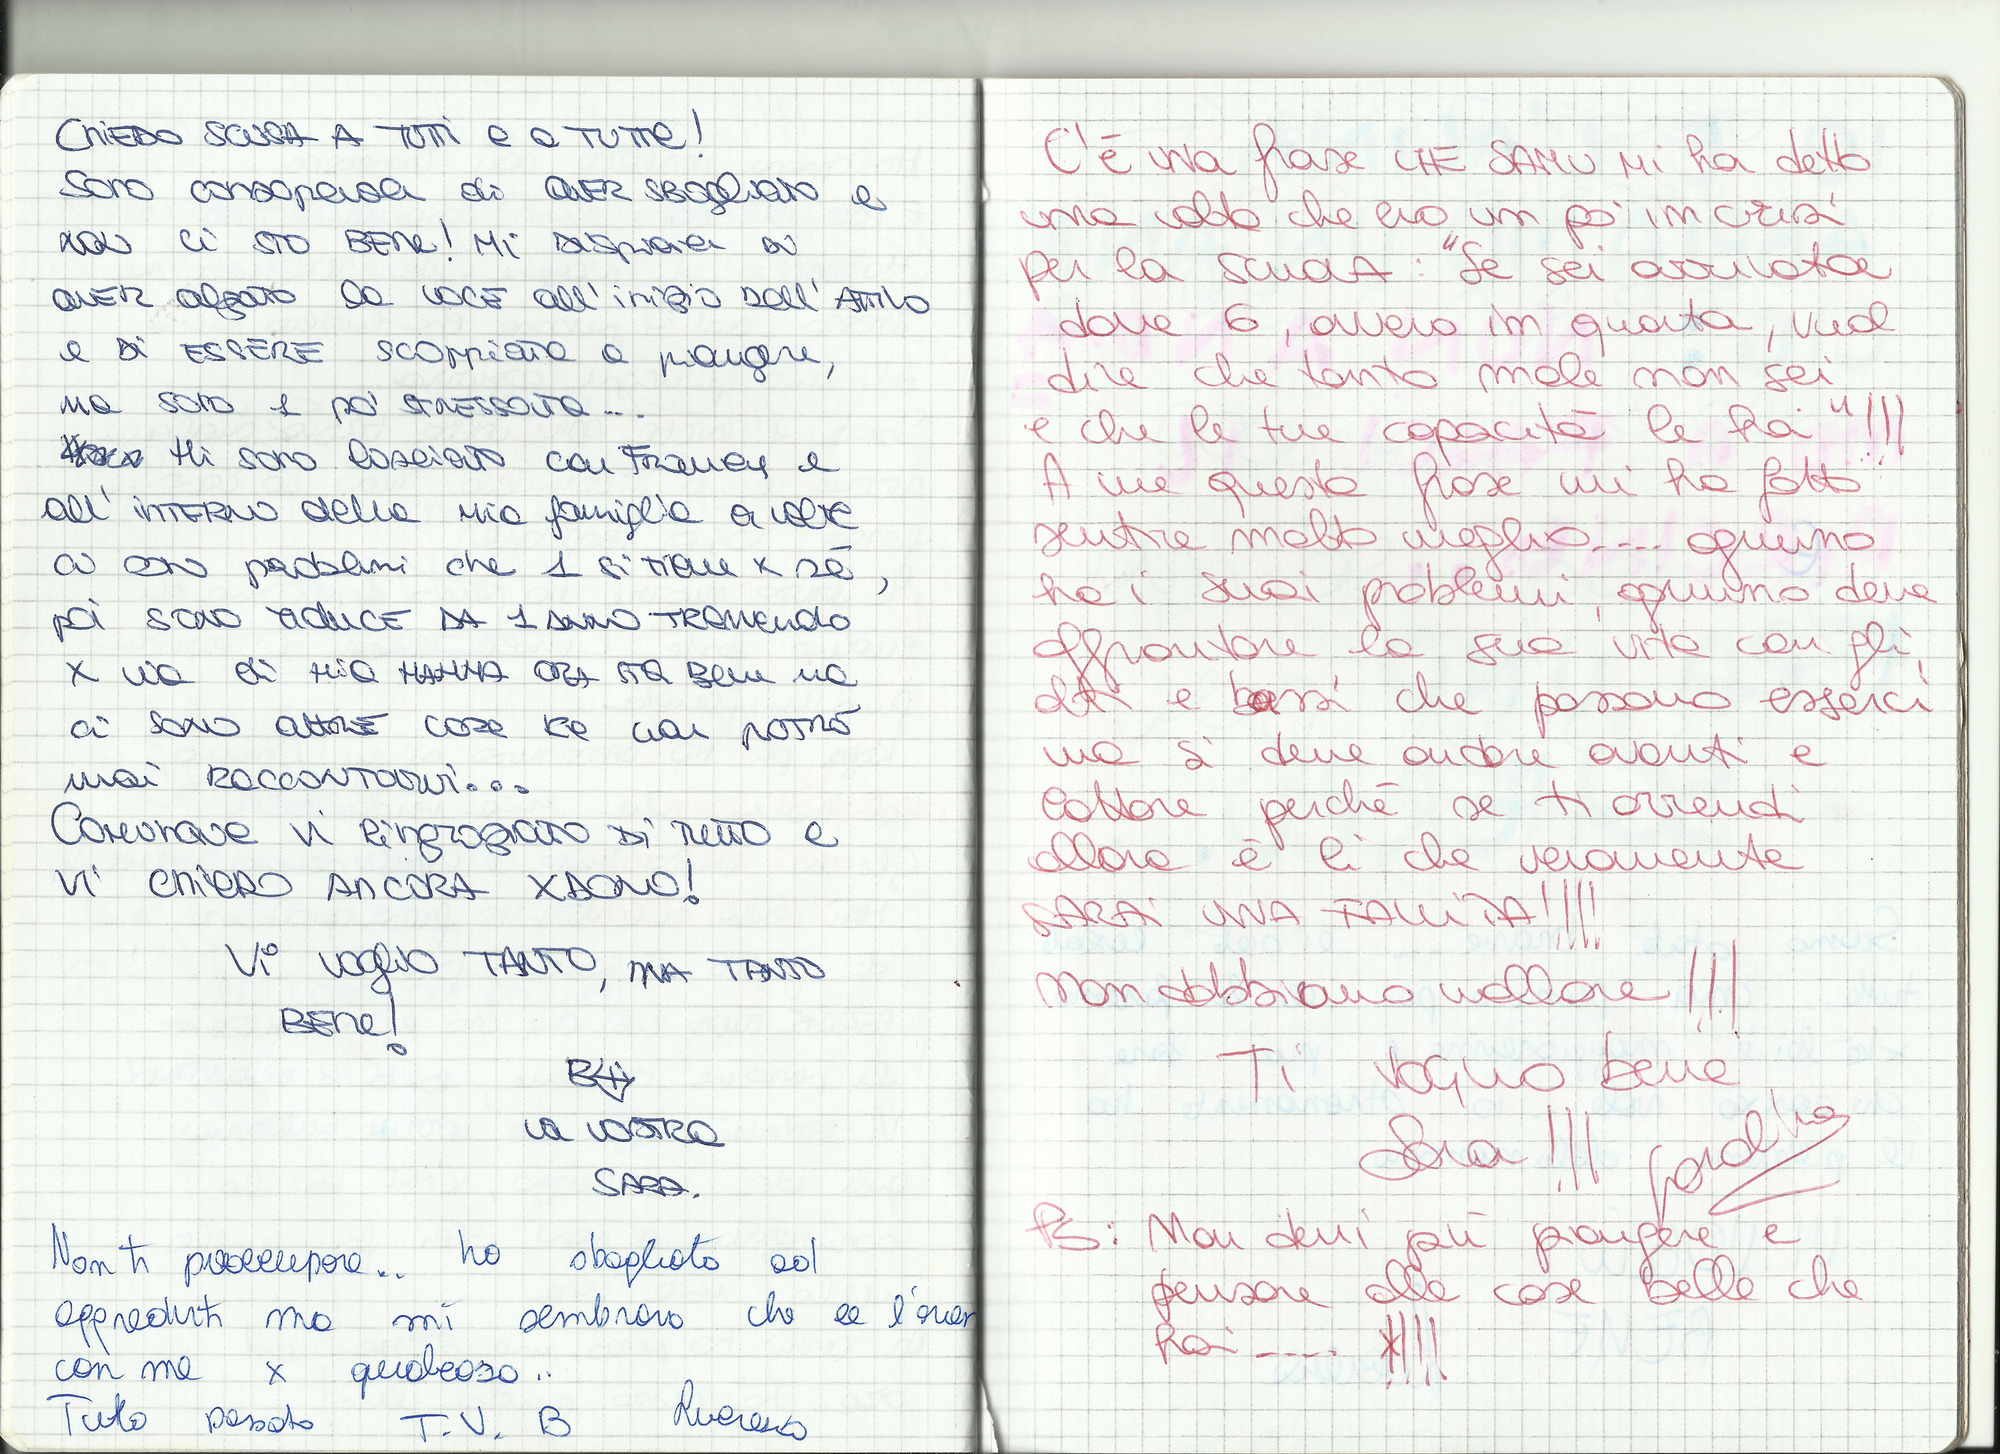 CHIEDO SCUSA A TUTTI e a TUTTE!
Sono consapevole di AVER SBAGLIATO e
NON ci STO BENe! Mi DISpiace di
AVER alzato la VOCE all'inizio DELL'ATTIVO
e DI ESSERE scoppiata a piangere,
ma sono 1 po' STRESSATA...
Mi sono lasciata con e
all'INTERNO della mia famiglia a volte
ci sono problemi che 1 si Tiene x sé,
poi sono reduce DA 1 ANNO TREMENDO
x via di mia MAMMA ORA STA Bene ma
ci sono ALTRE cose ke non POTRÒ
mai RACCONTARVI...
Comunque vi Ringrazio DI TUTTO e
VI CHIEDO ANCORA XDONO!
Vi voglio TANTO, MA TANTO
BENe!
LA VOSTRA
SARA.
Non ti preoccupare.. ho sbagliato ad
aggredirti ma mi sembrava che ce l'avevi
con me x qualcosa..
Tutto passato T.V.B
C'è una frase CHE SAMU Mi ha detto
una volta che ero un po' in crisi
per la scuola: "Se sei arrivata
dove 6, ovvero in quarta, vuol
dire che tanto male non sei
e che le tue capacità le hai"!!!
A me questa frase mi ha fatto
sentire molto meglio.... ognuno
ha i suoi problemi, ognuno deve
affrontare la sua vita con gli
alti e bassi che possono esserci
ma si deve andare avanti e
lottare perché se ti arrendi
allora è lì che veramente
SARAI UNA FALLITA!!!!
Non dobbiamo mollare!!!
Ti voglio bene
Sara!!!
PS: Non devi più piangere e
pensare alle cose belle che
hai .... !!!!